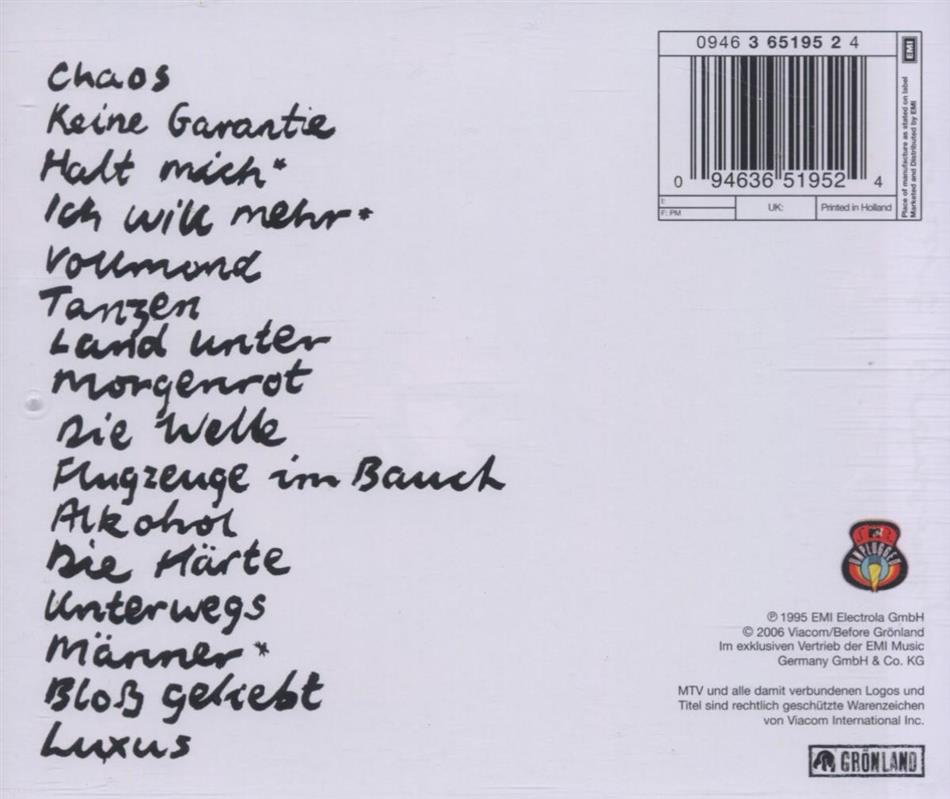 Chaos
Keine Garantie
Halt mich*
Ich will mehr*
Vollmond
Tanzen
Land unter
Morgenrot
Die Welle
Flugzeuge im Bauch
Alkohol
Die Härte
Unterwegs
Männer*
Bloß geliebt
Luxus
0946 3 65195 2 4
0 94636 51952 4
I:
F: PM
UK:
Printed in Holland
EMI
Place of manufacture as stated on label
Marketed and Distributed by EMI
MTV
UNPLUGGED
℗ 1995 EMI Electrola GmbH
© 2006 Viacom/Before Grönland
Im exklusiven Vertrieb der EMI Music
Germany GmbH & Co. KG
MTV und alle damit verbundenen Logos und
Titel sind rechtlich geschützte Warenzeichen
von Viacom International Inc.
GRÖNLAND